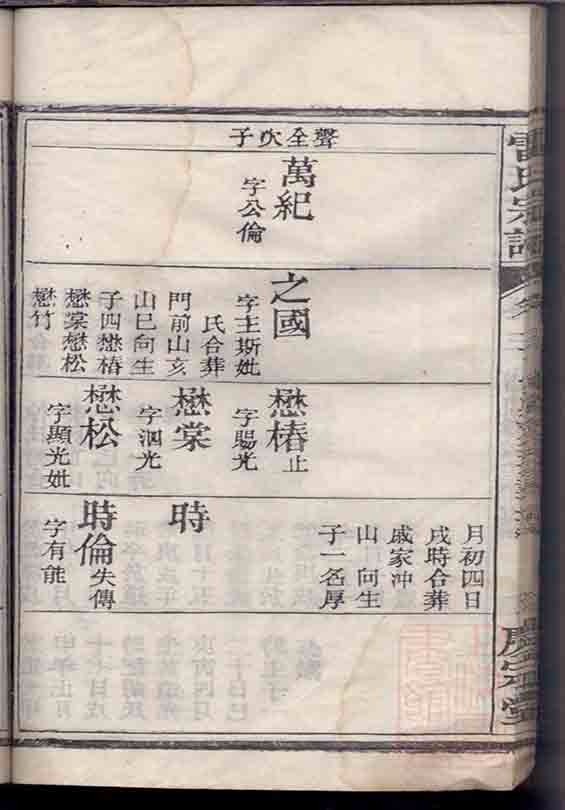 雷氏宗譜
聲全次子
萬紀
字公倫
之國
字主斯妣
氏合葬
門前山亥
山巳向生
子四懋椿
懋棠懋松
懋竹
懋椿止
字賜光
懋棠
字泗光
懋松
字顯光妣
月初四日
戌時合葬
戚家冲
山向生
子一名厚
時
時倫失傳
字有能